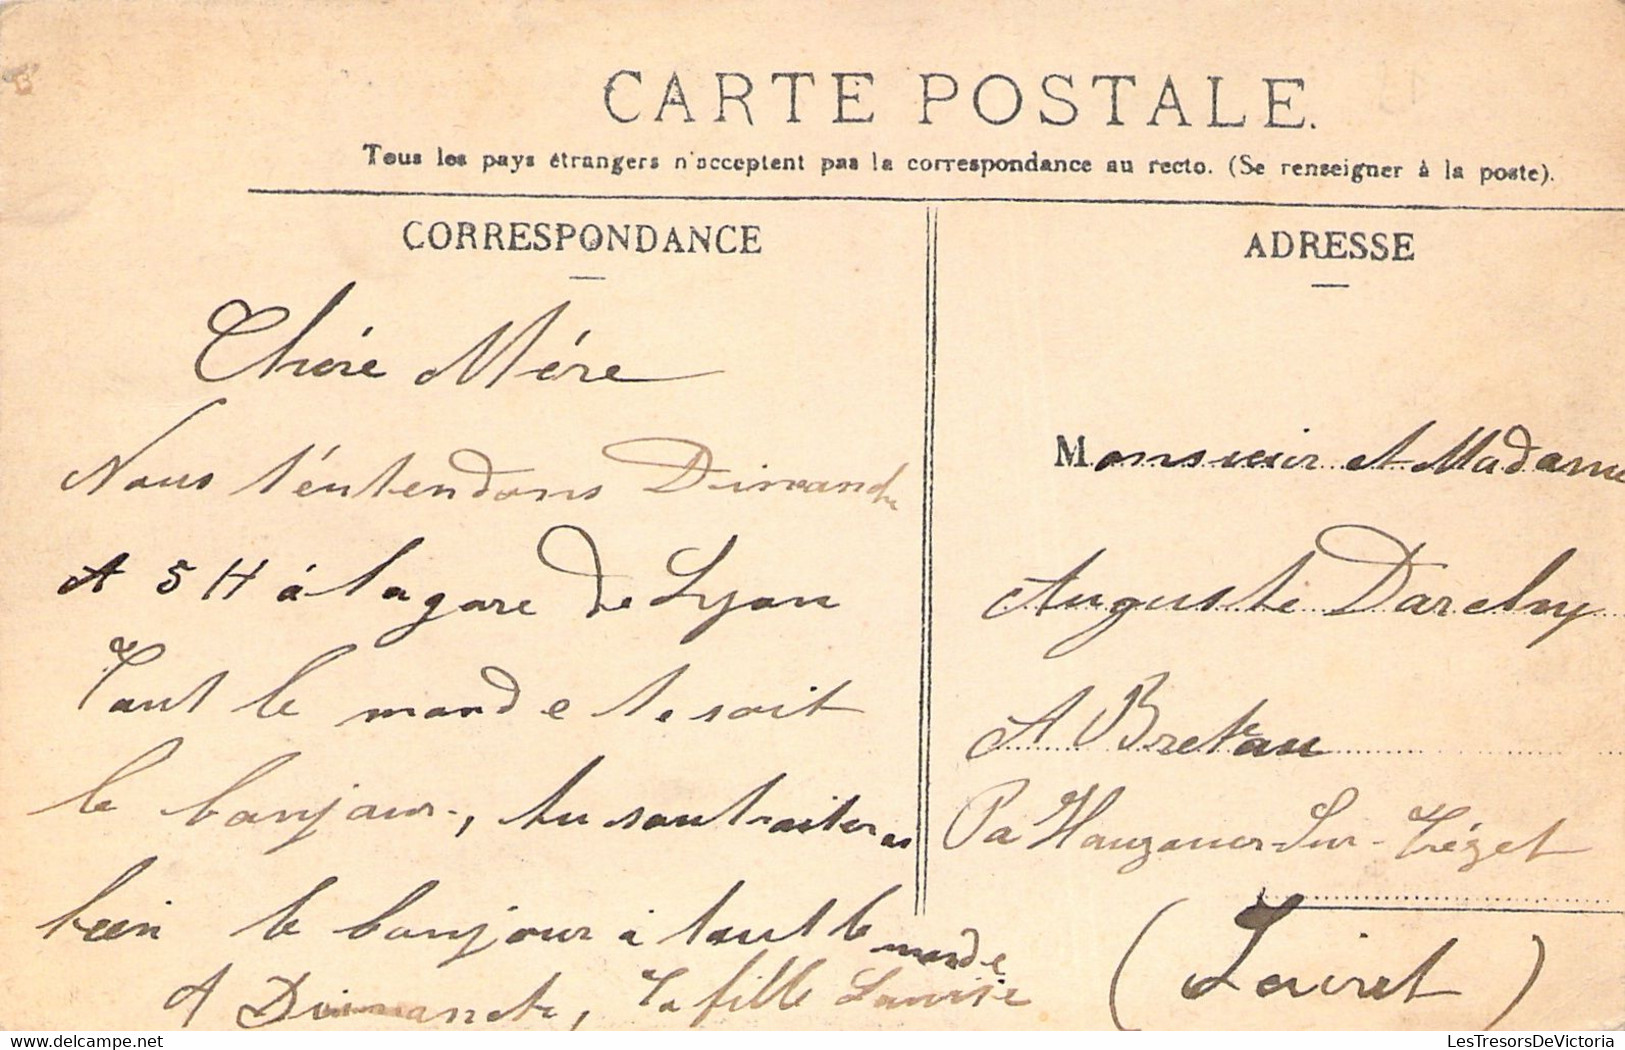 CARTE POSTALE.
Tous les pays étrangers n'acceptent pas la correspondance au recto. (Se renseigner à la poste).
CORRESPONDANCE
Chére Mére
Nous t'entendons Dimanche
A 5 H á la gare de Lyon
Tout le monde te soit
le bonjour, tu souhaiteras
bien le bonjour à tout le monde
A Dimanche, Ta fille Louise
ADRESSE
Monsieur et Madame
Auguste
A Bretau
Pa sur Trézet
(Loiret)
LesTresorsDeVictoria